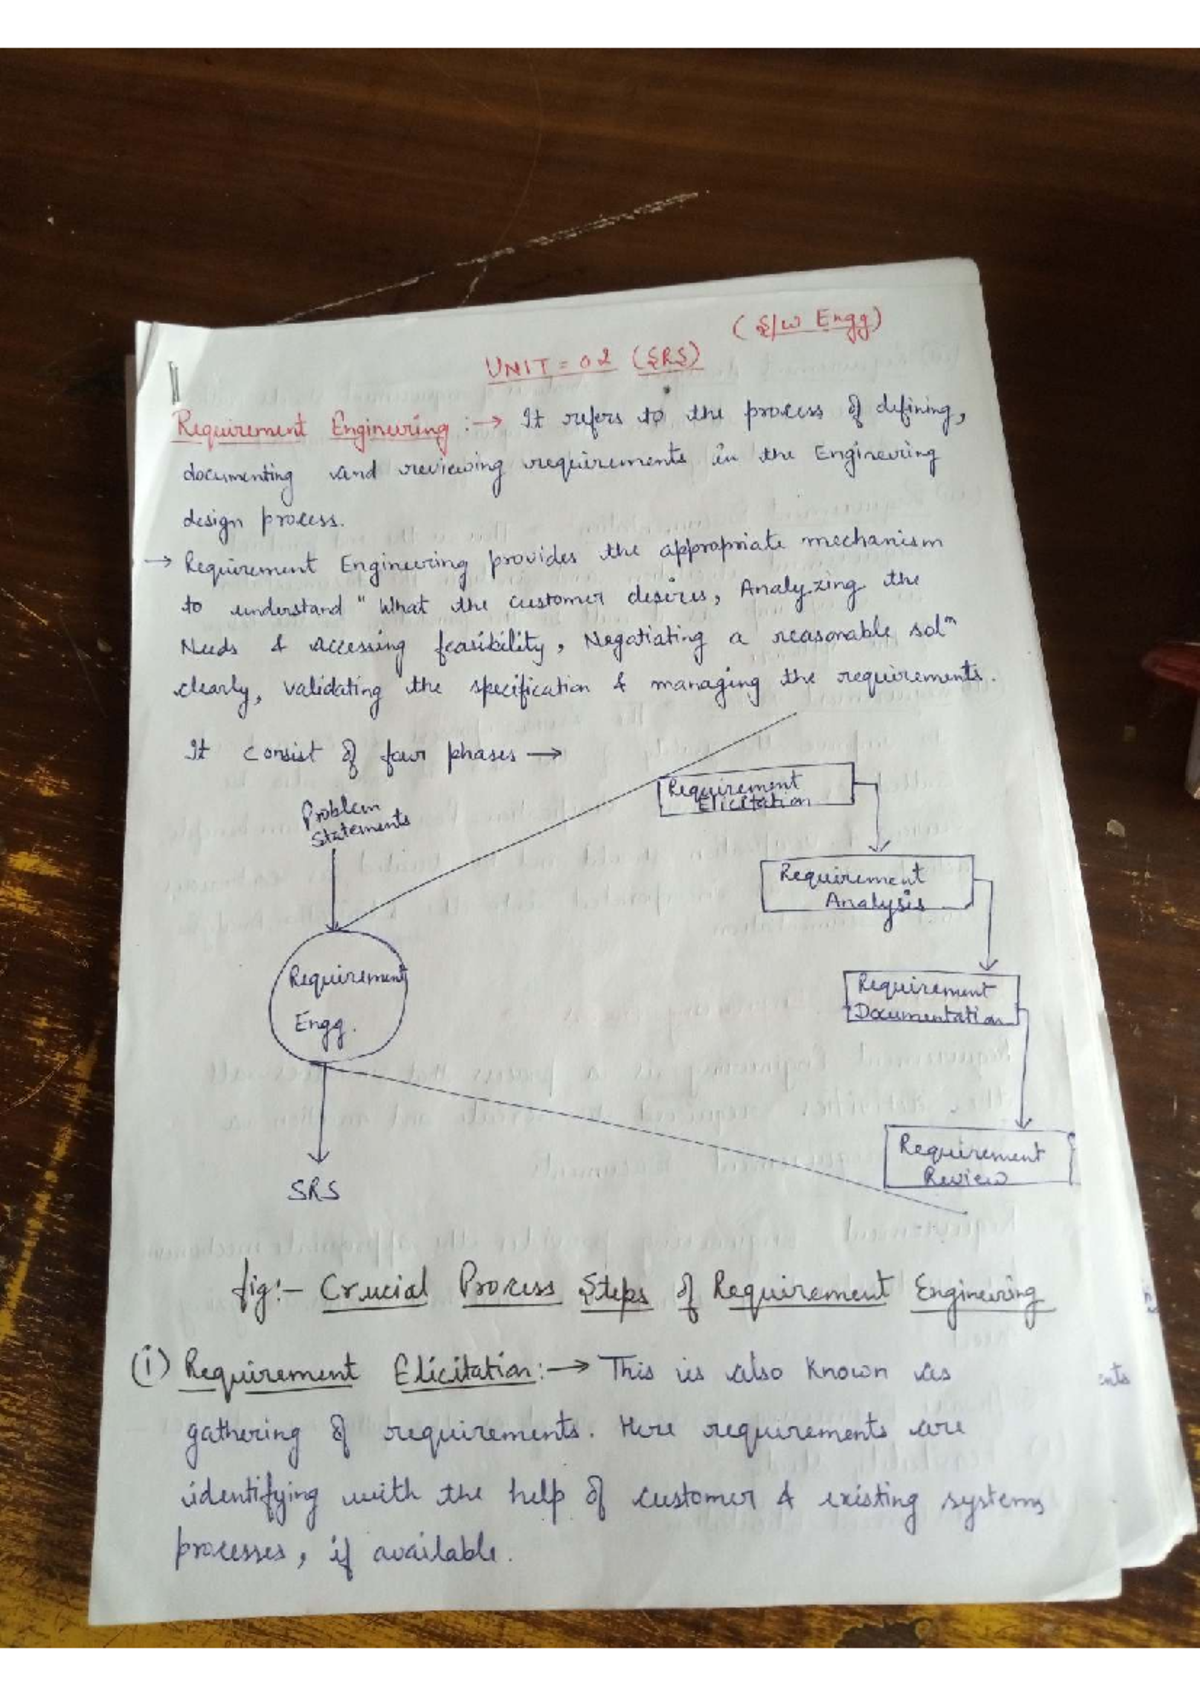 ( S/W Engg)
UNIT = 02 (SRS)
Requirement Engineering :→ It refers to the process of defining,
documenting and reviewing requirements in the Engineering
design process.
→ Requirement Engineering provides the appropriate mechanism
to understand " What the customer desires, Analyzing the
Needs & accessing feasibility, Negotiating a reasonable solⁿ
clearly, validating the specification & managing the requirements.
It consist of four phases →
Problem
Statements
Requirement
Elicitation
Requirement
Analysis
Requirement
Engg.
Requirement
Documentation
Requirement
Review
SRS
fig:- Crucial Process Steps of Requirement Engineering
(i) Requirement Elicitation:→ This is also known as
gathering of requirements. Here requirements are
identifying with the help of customer & existing systems
processes, if available.